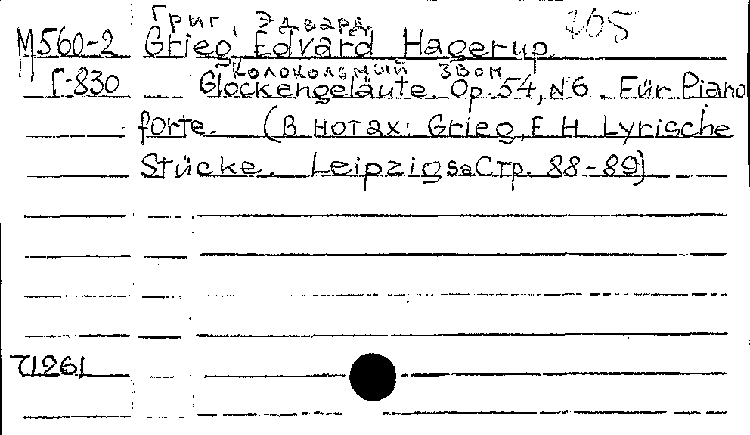 Григ, Эдвард 205
М560-2 Grieg, Edvard Hagerup
Колокольный звон
Г-830 Glockengeläute. Op. 54, N6. Für Piano
forte. (В нотах: Grieg, E. H. Lyrische
Stücke. Leipzig s.a. Стр. 88-89)
71261